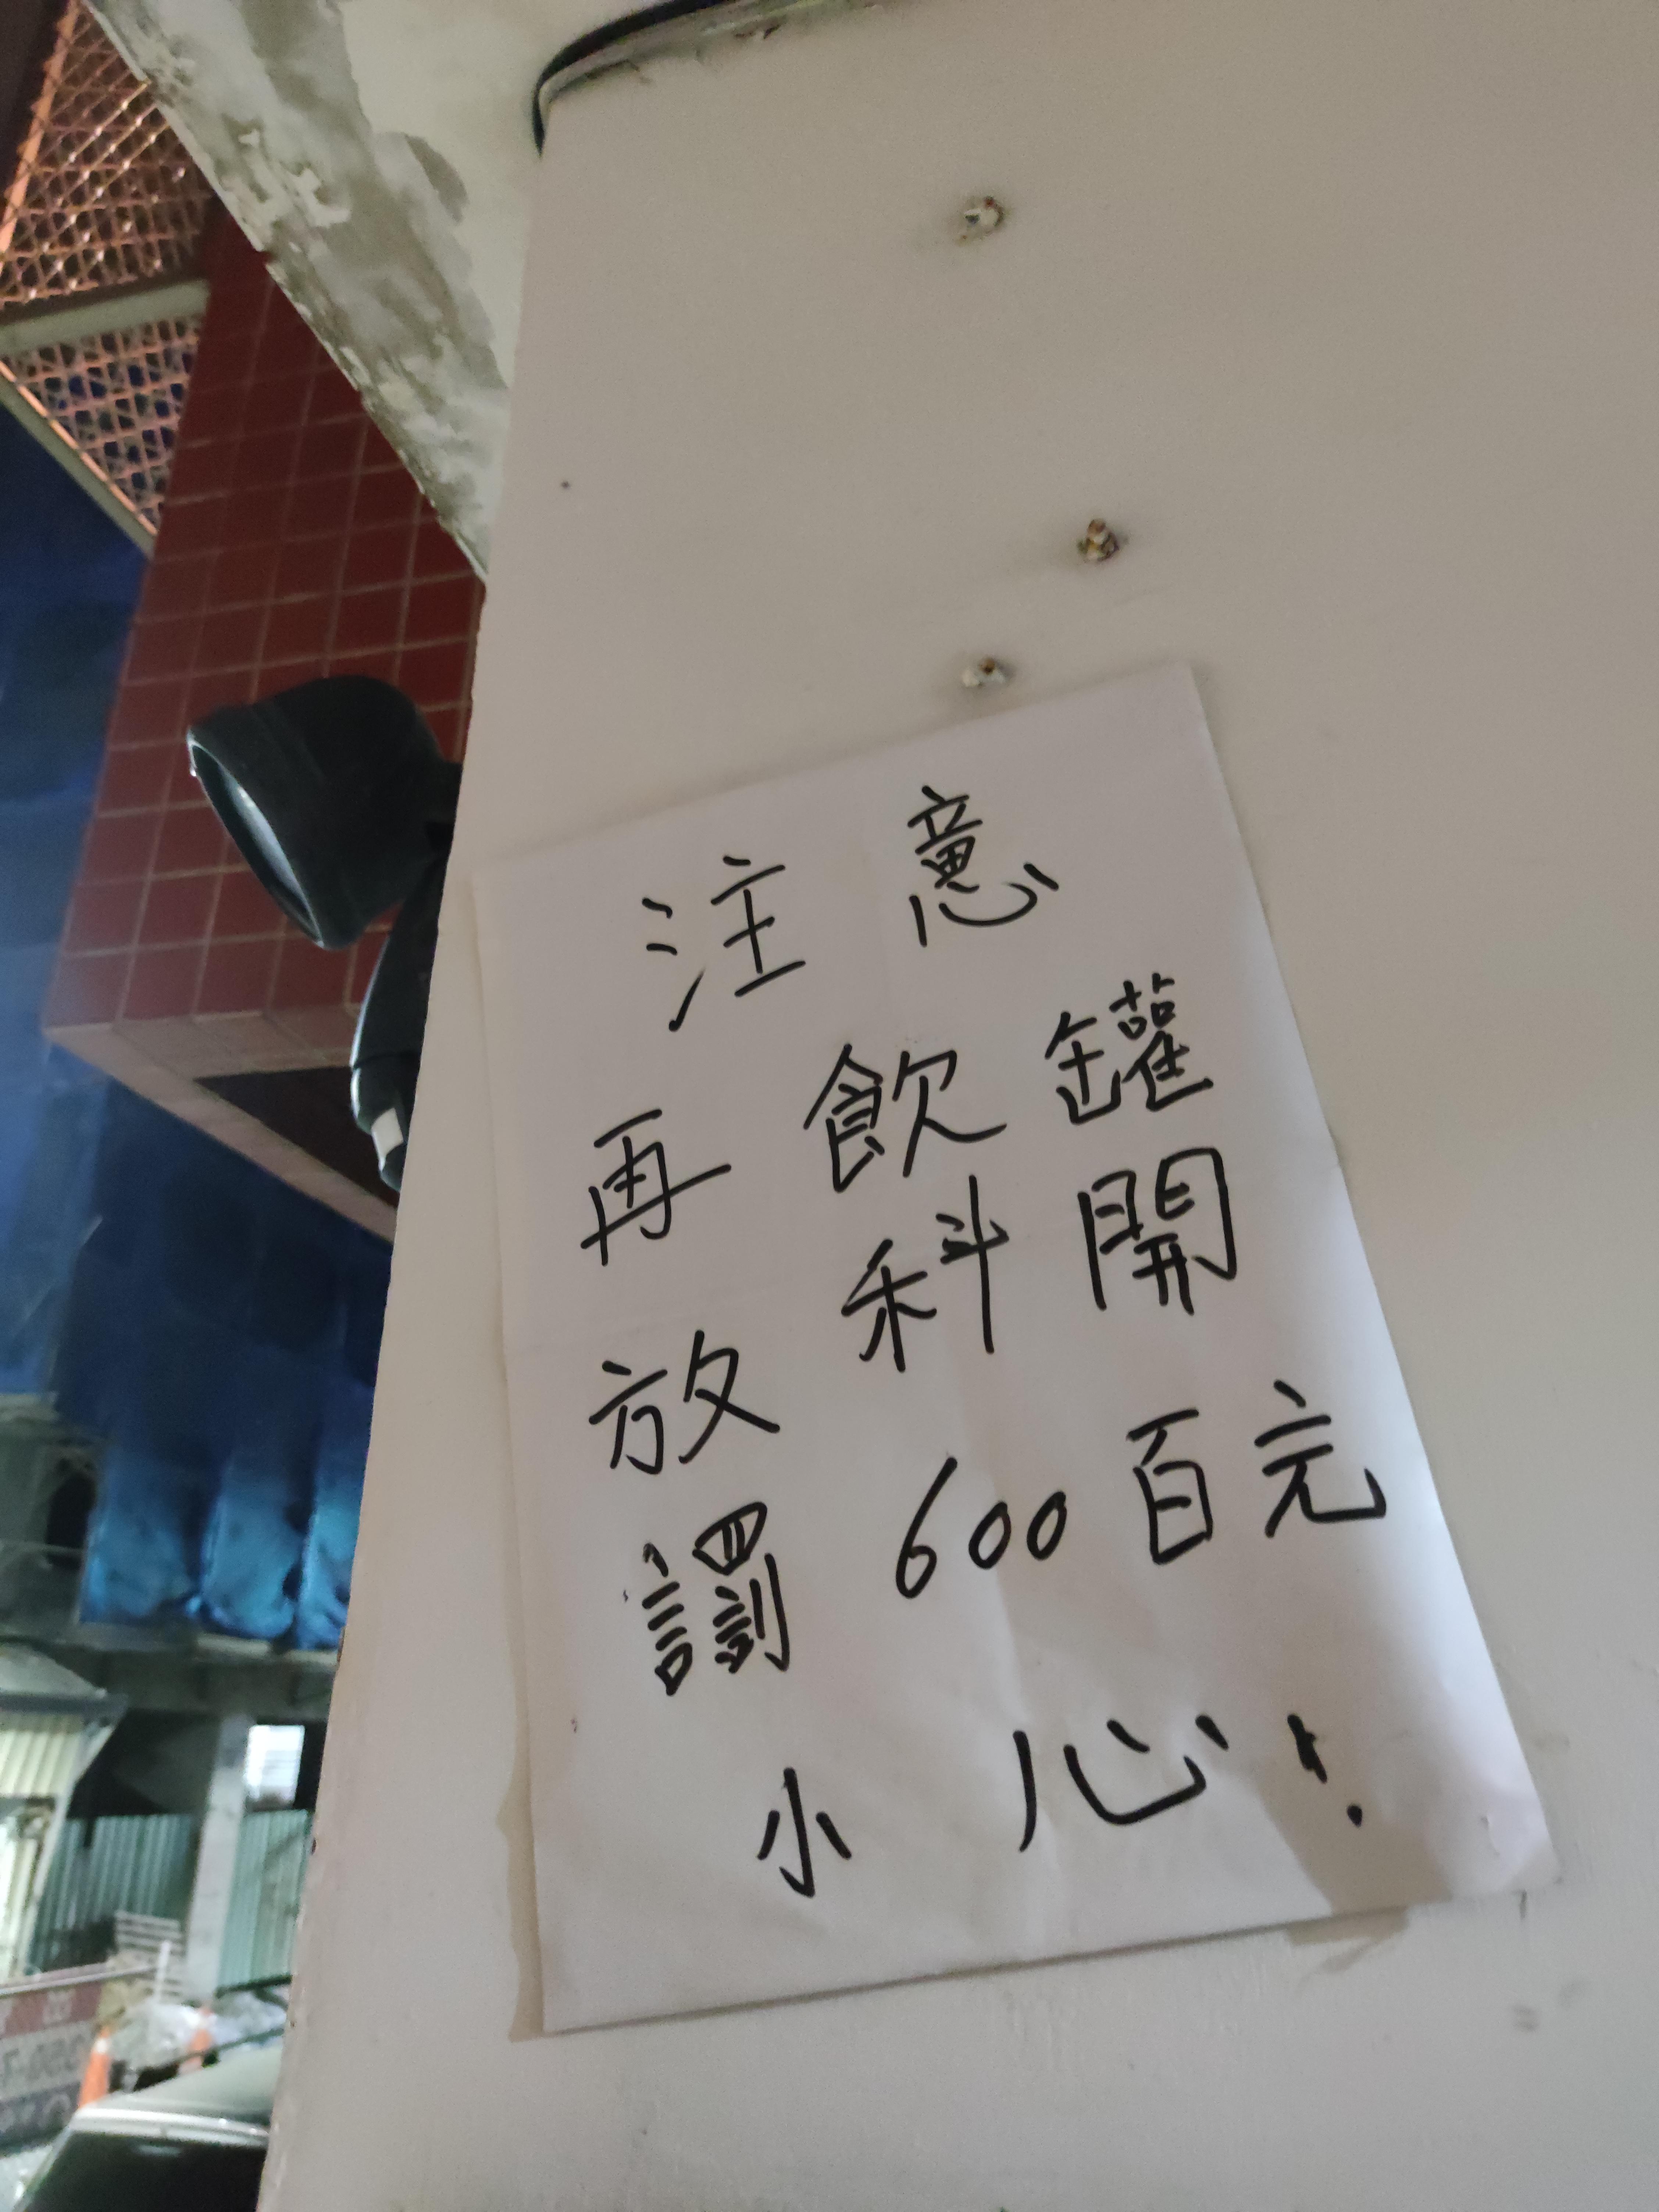 注意
再 飲 罐
放 科 開
罰 600百元
小心!